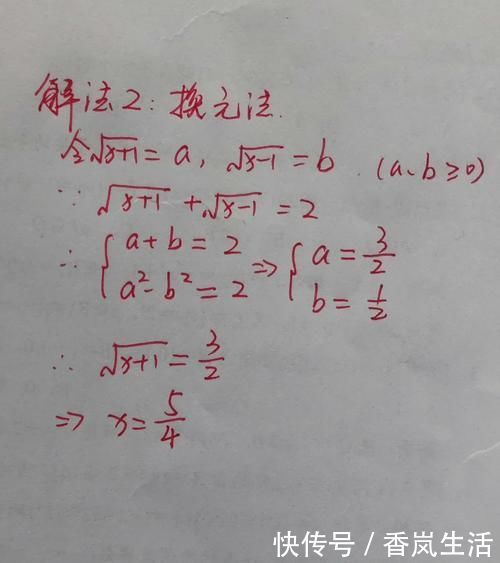 解法2：换元法.
令√(x+1) = a, √(x-1) = b. (a、b ≥ 0)
∵ √(x+1) + √(x-1) = 2
∴ { a + b = 2 a² - b² = 2 ⇒ { a = 3/2 b = 1/2
∴ √(x+1) = 3/2
⇒ x = 5/4
快传号 / 香岚生活